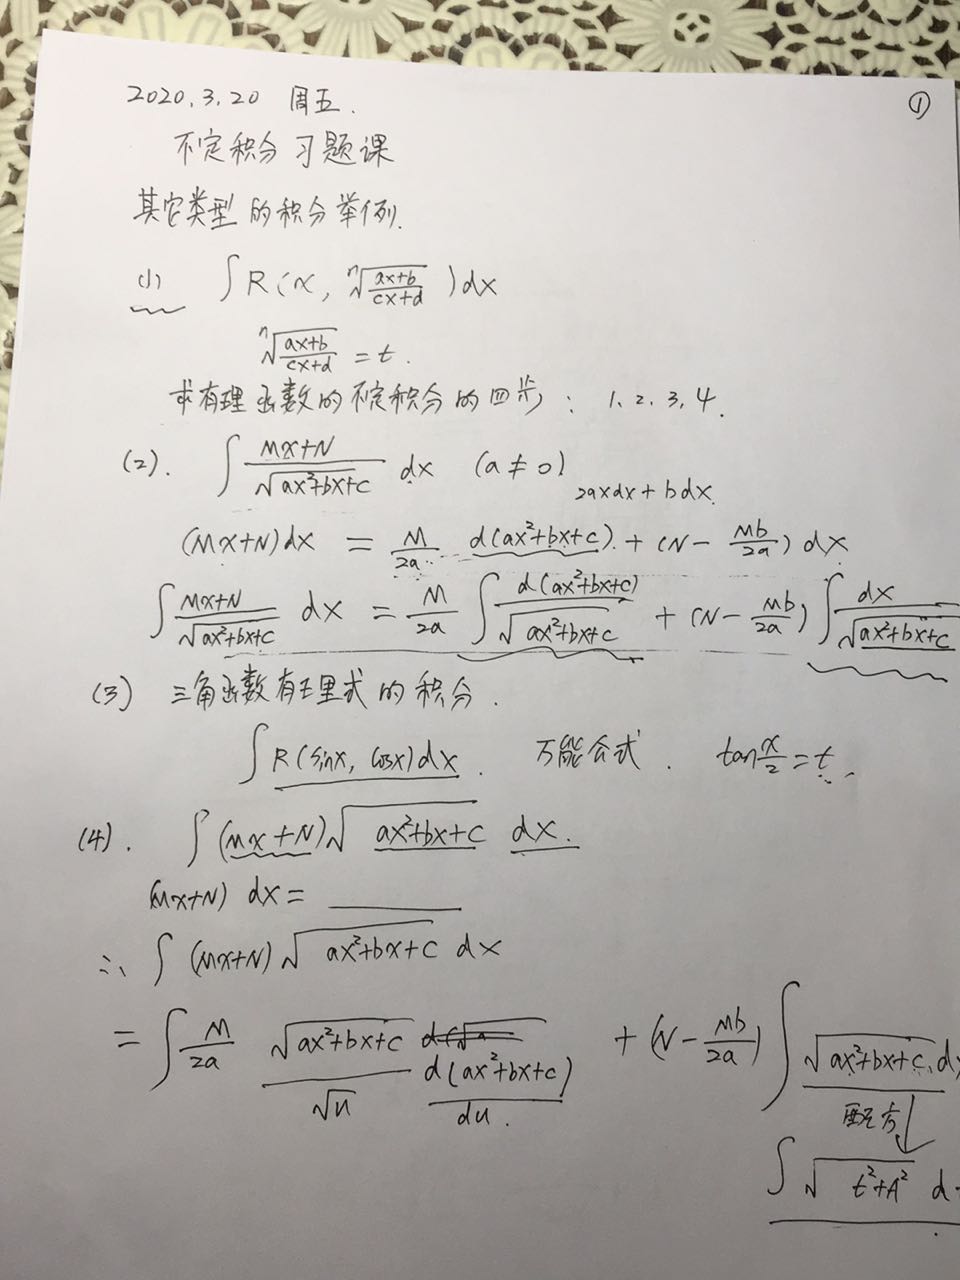 ①
2020.3.20 周五.
不定积分习题课
其它类型的积分举例.
(1) ∫R(x, ⁿ√((ax+b)/(cx+d)))dx
ⁿ√((ax+b)/(cx+d)) = t.
求有理函数的不定积分的四步: 1、2、3、4.
(2). ∫(Mx+N)/√(ax²+bx+c) dx (a≠0)
2axdx + bdx.
(Mx+N)dx = M/2a d(ax²+bx+c) + (N - Mb/2a) dx
∫(Mx+N)/√(ax²+bx+c) dx = M/2a ∫d(ax²+bx+c)/√(ax²+bx+c) + (N - Mb/2a) ∫dx/√(ax²+bx+c)
(3) 三角函数有理式的积分.
∫R(sinx, cosx)dx. 万能公式. tan x/2 = t.
(4). ∫(Mx+N)√(ax²+bx+c) dx.
(Mx+N) dx = ____
∴ ∫(Mx+N)√(ax²+bx+c) dx
= ∫ M/2a √(ax²+bx+c) d(ax²+bx+c) + (N - Mb/2a) ∫√(ax²+bx+c) dx
√u du.
配方
∫√(t²+A²) d